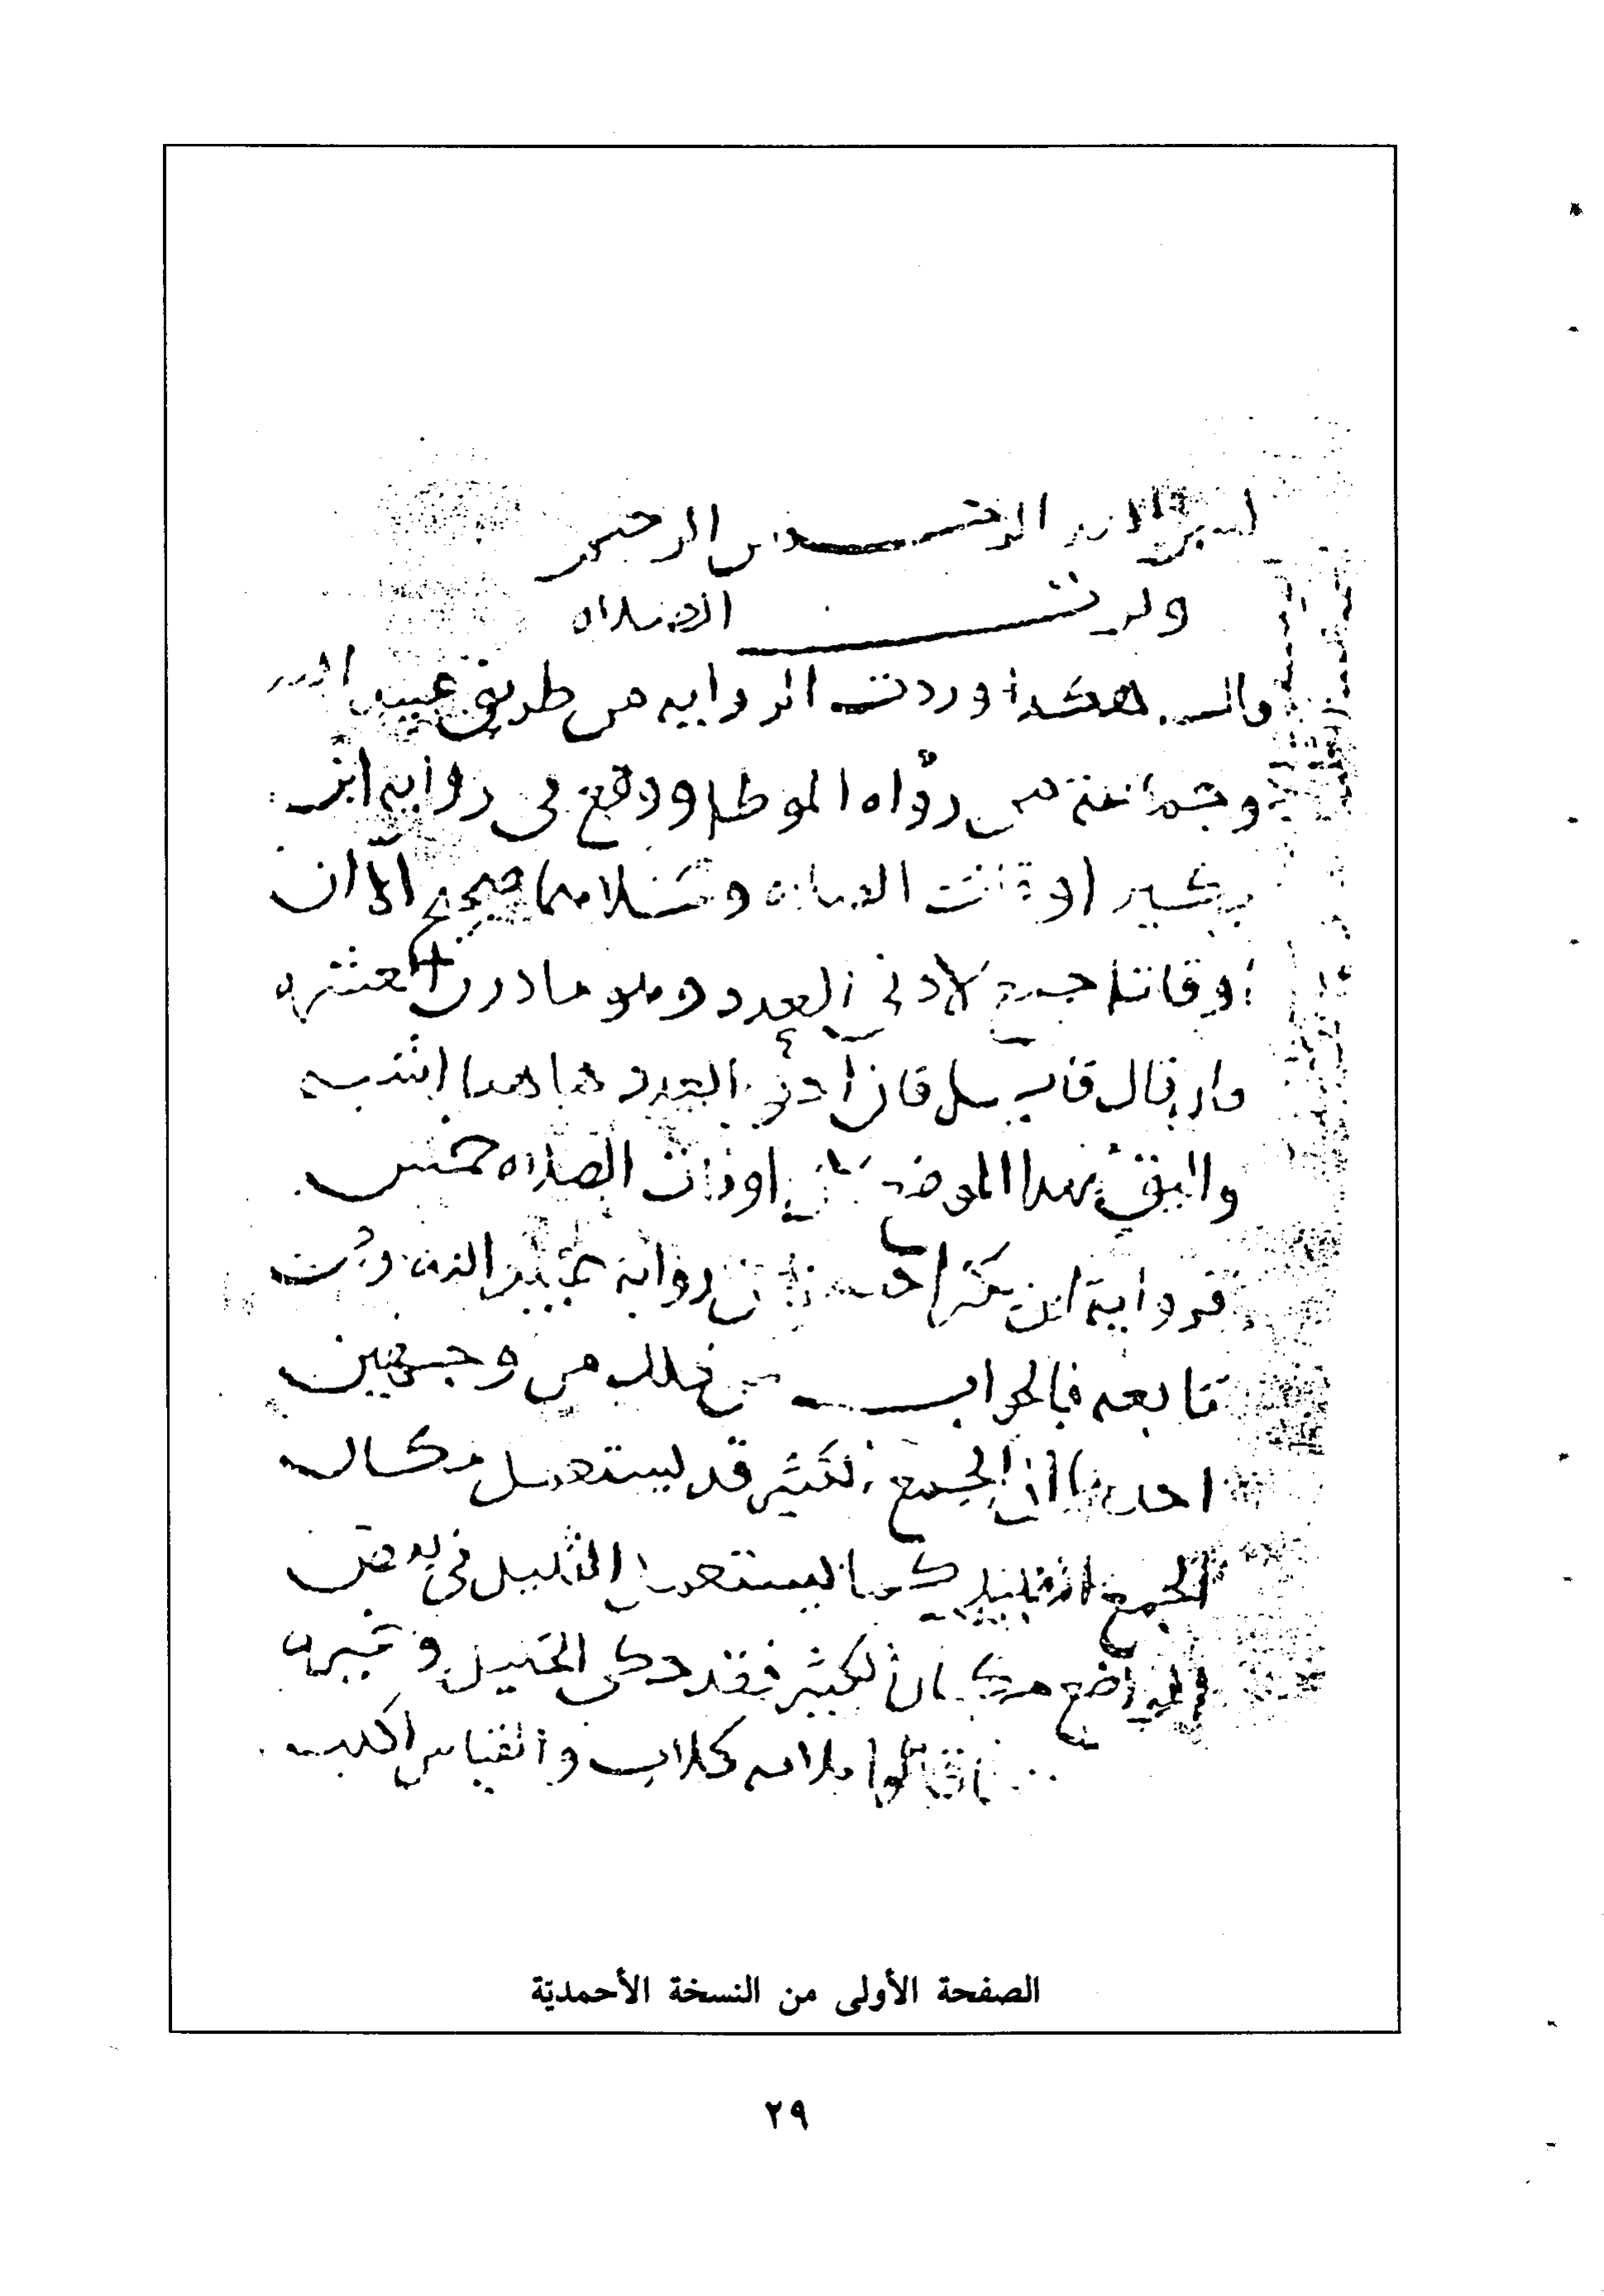 بسم الله الرحمن الرحيم
وقت الصلاه
قال هكذا وردت الروايه من طريق عبيد الله
وجماعة من رواه الموطا ووقع في روايه ابن
بكير اوقات الصلاه وكلاهما صحيح الا ان
اوقاتا جمع لادنى العدد وهو ما دون العشره
فان قال قايل فان ادنى العدد هاهنا اشبه
واليق بهذا الموضع لان اوقات الصلاه خمس
فرواية ابن بكير احسن من رواية عبيد الله ومن
تابعه فالجواب عن ذلك من وجهين
احدهما ان الجمع الكثير قد يستعمل مكان
الجمع القليل كما يستعمل القليل في بعض
المواضع مكان الكثير فقد حكى الخليل وغيره
قالوا ثلاثه كلاب والقياس اكلب
الصفحة الأولى من النسخة الأحمديّة
٢٩